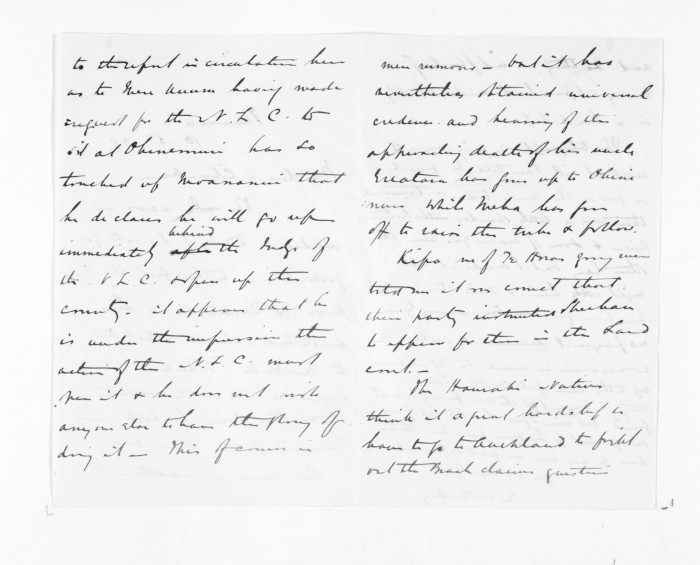 to the report in circulation here
as to Mere Kuru having made
request for the N. L. C. to
sit at Ohinemuri has so
touched up Moananui that
he declares he will go up
immediately behind the Judge of
the N L C. & open up the
country. it appears that he
is under the impression the
action of the N. L. C. must
open it & he does not wish
anyone else to have the glory of
doing it — This of course is
mere rumour — but it has
nevertheless obtained universal
credence. and hearing of the
approaching death of his uncle
has gone up to Ohine
muri while has gone
off to raise the tribe & follow.
Kepa
told me it was correct that
their party instructed Sheehan
to appear for them in the Land
court. —
The Hauraki Natives
think it a great hardship to
have to go to Auckland to fight
out the Beach claims question